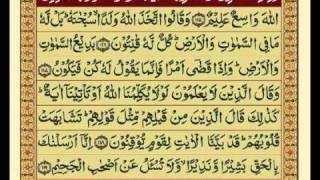 اللّٰهَ وَاسِعٌ عَلِيْمٌ ﴿۱۱۵﴾ وَقَالُوا اتَّخَذَ اللّٰهُ وَلَدًا سُبْحٰنَهٗ بَلْ لَّهٗ
مَا فِي السَّمٰوٰتِ وَالْاَرْضِ كُلٌّ لَّهٗ قٰنِتُوْنَ ﴿۱۱۶﴾ بَدِيْعُ السَّمٰوٰتِ
وَالْاَرْضِ وَاِذَا قَضٰٓى اَمْرًا فَاِنَّمَا يَقُوْلُ لَهٗ كُنْ فَيَكُوْنُ ﴿۱۱۷﴾
وَقَالَ الَّذِيْنَ لَا يَعْلَمُوْنَ لَوْلَا يُكَلِّمُنَا اللّٰهُ اَوْ تَاْتِيْنَآ اٰيَةٌ
كَذٰلِكَ قَالَ الَّذِيْنَ مِنْ قَبْلِهِمْ مِّثْلَ قَوْلِهِمْ تَشَابَهَتْ
قُلُوْبُهُمْ قَدْ بَيَّنَّا الْاٰيٰتِ لِقَوْمٍ يُّوْقِنُوْنَ ﴿۱۱۸﴾ اِنَّآ اَرْسَلْنٰكَ
بِالْحَقِّ بَشِيْرًا وَّنَذِيْرًا وَّلَا تُسْـَٔلُ عَنْ اَصْحٰبِ الْجَحِيْمِ ﴿۱۱۹﴾